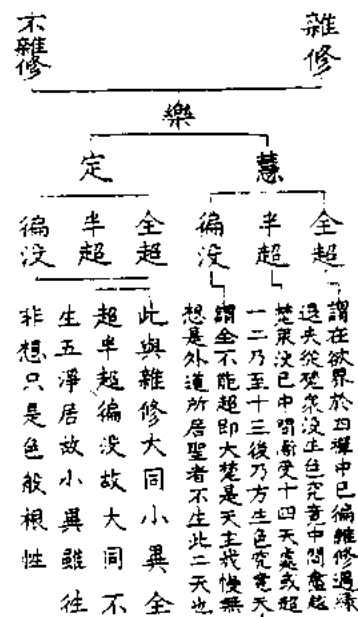 雜修
不雜修
樂
慧
定
全超
半超
徧没
全超
半超
徧没
謂在欲界於四禪中已徧雜修遇緣
退失從梵衆没生色究竟中間盡越
梵衆没已中間漸受十四天處或超
一二乃至十三後乃方生色究竟天
謂全不能超即大梵是天主我慢無
想是外道所居聖者不生此二天也
此與雜修大同小異全
超半超徧没故大同不
生五淨居故小異雖往
非想只是色般根性